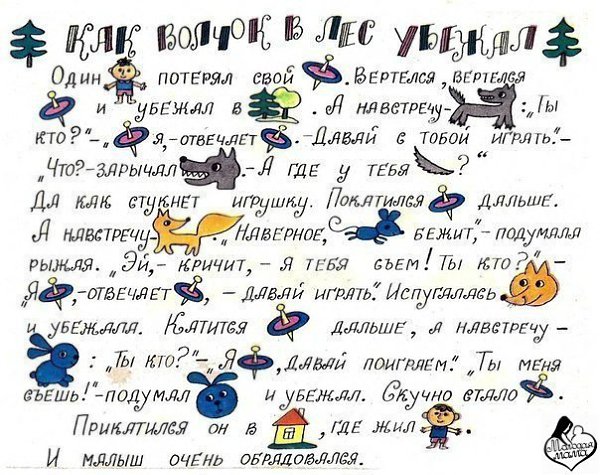 КАК ВОЛЧОК В ЛЕС УБЕЖАЛ
Один потерял свой . Вертелся, вертелся
и убежал в . А навстречу- : „Ты
кто?"-„ я,-отвечает .-Давай с тобой играть."-
„Что?-зарычал .-А где у тебя ?"
Да как стукнет игрушку. Покатился дальше.
А навстречу . „Наверное, бежит",-подумала
рыжая. „Эй,- кричит, - я тебя съем! Ты кто?"-
„Я ,-отвечает , - давай играть." Испугалась
и убежала. Катится дальше, а навстречу -
: „Ты кто?"-„Я , давай поиграем." „Ты меня
съешь!"-подумал и убежал. Скучно стало .
Прикатился он в , где жил .
И малыш очень обрадовался.
Молодая
мама